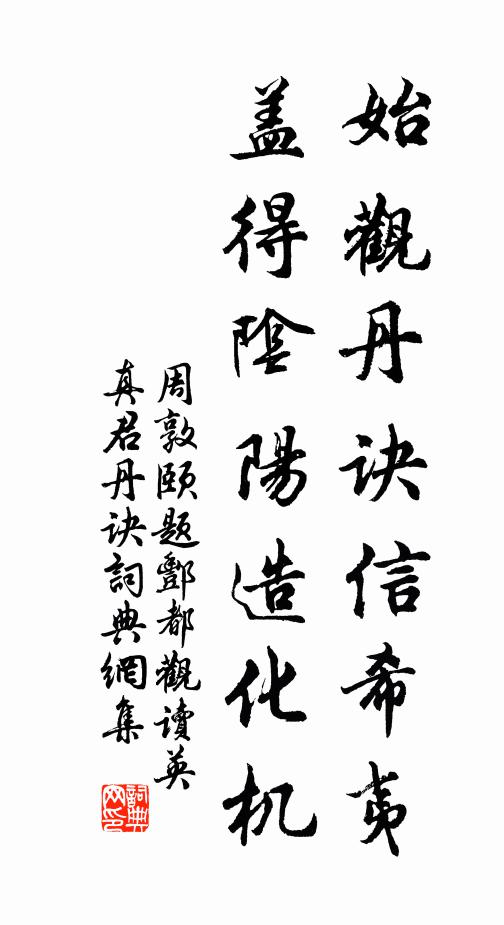 始觀丹诀信希夷
盖得陰陽造化机
周敦颐题酆都觀读英
真君丹诀詞典網集
詞典网印